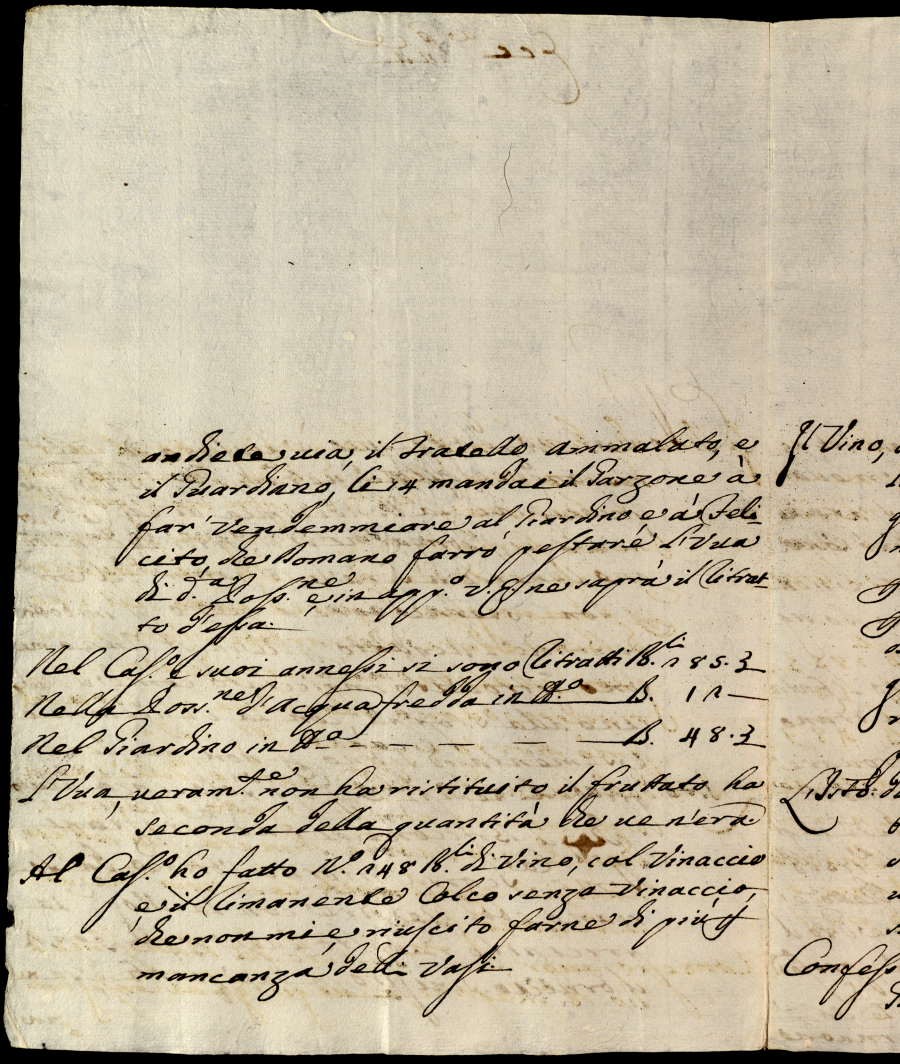 andiete via, il fratello ammalato, e
il Guardiano, li 14 mandai il Garzone à
far' Vendemmiare al Giardino e à Feli-
cito, che Romano farrò pestare L'Vua
di d.a Poss.ne, e in app.o V.E. ne saprà il ritrat-
to d'essa.
Nel Cas.o e suoi annessi si sono ritratti B.li 185.3
Nella Poss.ne d'Acqua fredda in B. 12
Nel Giardino in B. 48.3
L'Vua, veram.te non ha ristituito il fruttato ha
seconda della quantità che ve n'era
Al Cas.o ho fatto N.o 148 B.li di Vino, col Vinaccio
è il rimanente Colco senza Vinaccio,
che non mi è riuscito farne di più p
mancanza de Vasi.
Il Vino,
Confess